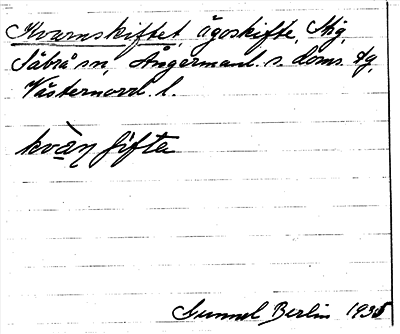 Kvarnskiftet, ägoskifte, Stig,
Säbrå sn, Ångermanl. s. doms. tg,
Västernorrl. l.
kvàn ʃifta
Gunnel Berlin 1935